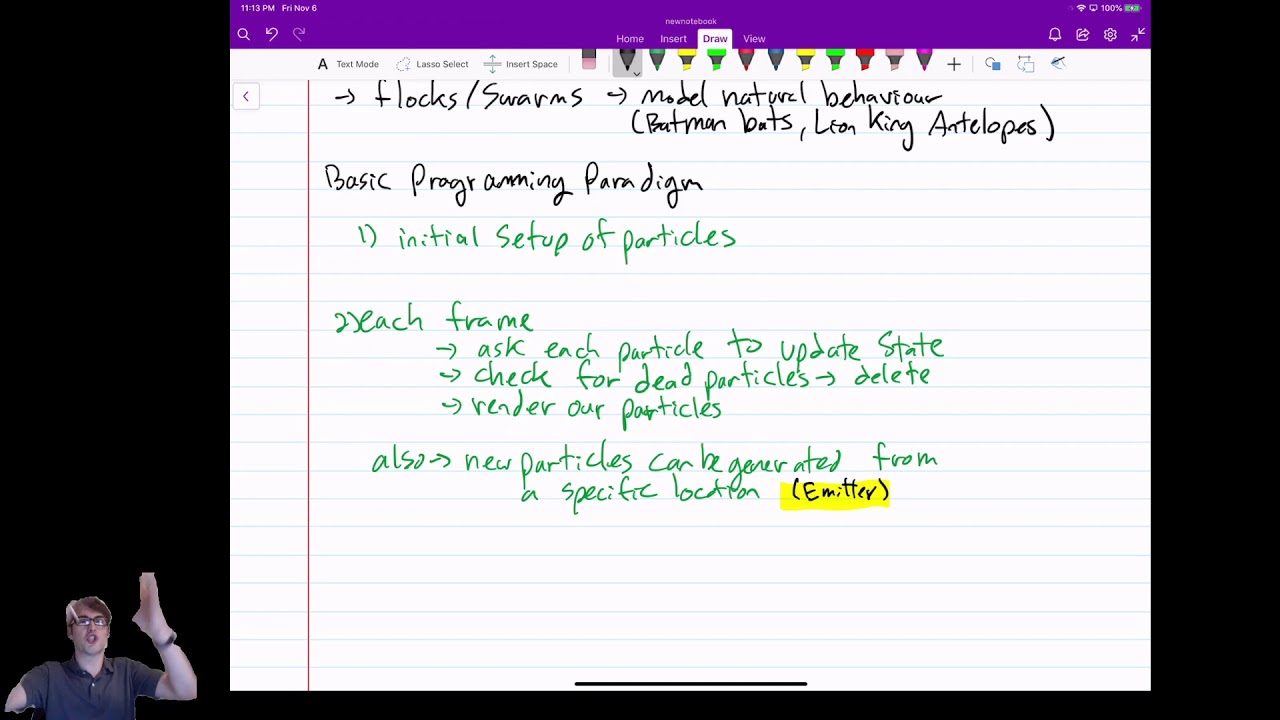 11:13 PM Fri Nov 6
100%
newnotebook
Home Insert Draw View
Text Mode Lasso Select Insert Space
→ flocks/Swarms → model natural behaviour
(Batman bats, Lion King Antelopes)
Basic Programming Paradigm
1) initial Setup of particles
2) each frame
→ ask each particle to update State
→ check for dead particles → delete
→ render our particles
also → new particles can be generated from
a specific location (Emitter)